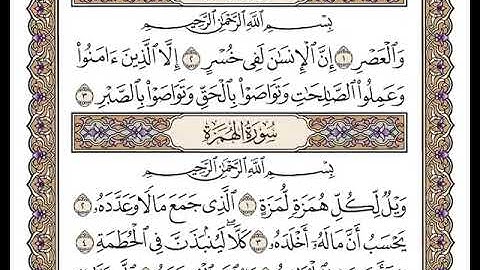 بِسْمِ ٱللَّهِ ٱلرَّحْمَٰنِ ٱلرَّحِيمِ
وَٱلْعَصْرِ ١ إِنَّ ٱلْإِنسَٰنَ لَفِى خُسْرٍ ٢ إِلَّا ٱلَّذِينَ ءَامَنُوا۟
وَعَمِلُوا۟ ٱلصَّٰلِحَٰتِ وَتَوَاصَوْا۟ بِٱلْحَقِّ وَتَوَاصَوْا۟ بِٱلصَّبْرِ ٣
سُورَةُ الهُمَزَةِ
بِسْمِ ٱللَّهِ ٱلرَّحْمَٰنِ ٱلرَّحِيمِ
وَيْلٌ لِّكُلِّ هُمَزَةٍ لُّمَزَةٍ ١ ٱلَّذِى جَمَعَ مَالًا وَعَدَّدَهُۥ ٢
يَحْسَبُ أَنَّ مَالَهُۥٓ أَخْلَدَهُۥ ٣ كَلَّا ۖ لَيُنۢبَذَنَّ فِى ٱلْحُطَمَةِ ٤